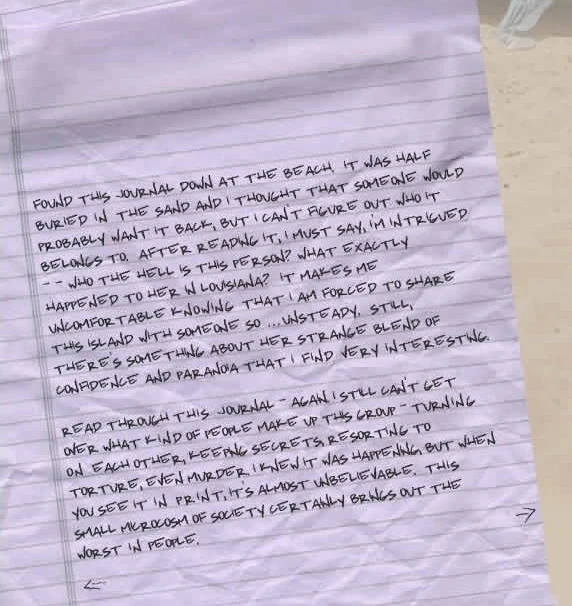 FOUND THIS JOURNAL DOWN AT THE BEACH. IT WAS HALF
BURIED IN THE SAND AND I THOUGHT THAT SOMEONE WOULD
PROBABLY WANT IT BACK, BUT I CAN'T FIGURE OUT WHO IT
BELONGS TO. AFTER READING IT, I MUST SAY, I'M INTRIGUED
-- WHO THE HELL IS THIS PERSON? WHAT EXACTLY
HAPPENED TO HER IN LOUSIANA? IT MAKES ME
UNCOMFORTABLE KNOWING THAT I AM FORCED TO SHARE
THIS ISLAND WITH SOMEONE SO ...UNSTEADY. STILL,
THERE'S SOMETHING ABOUT HER STRANGE BLEND OF
CONFIDENCE AND PARANOIA THAT I FIND VERY INTERESTING.
READ THROUGH THIS JOURNAL - AGAIN I STILL CAN'T GET
OVER WHAT KIND OF PEOPLE MAKE UP THIS GROUP - TURNING
ON EACH OTHER, KEEPING SECRETS, RESORTING TO
TORTURE, EVEN MURDER. I KNEW IT WAS HAPPENING, BUT WHEN
YOU SEE IT IN PRINT, IT'S ALMOST UNBELIEVABLE. THIS
SMALL MICROCOSM OF SOCIETY CERTAINLY BRINGS OUT THE
WORST IN PEOPLE.